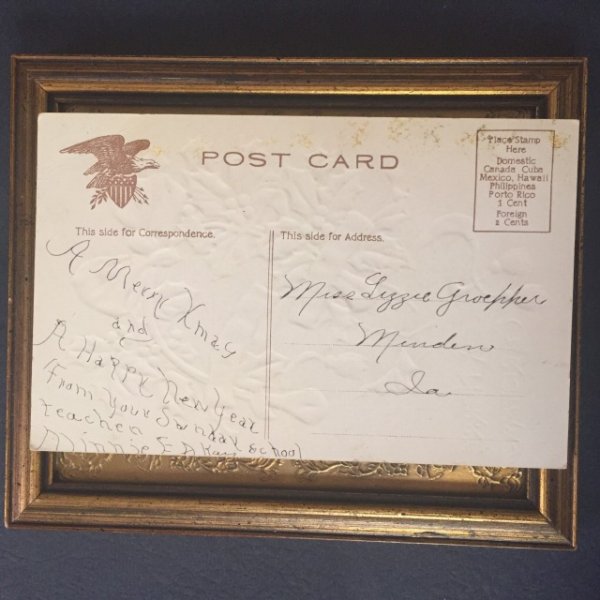 POST CARD
Place Stamp
Here
Domestic
Canada Cuba
Mexico, Hawaii
Philippines
Porto Rico
1 Cent
Foreign
2 Cents
This side for Correspondence.
A Merry Xmas
and
A Happy New Year
From your Sunday School
teacher
Minnie E
This side for Address.
Miss Lizzie Groepper
Minden
Ia.